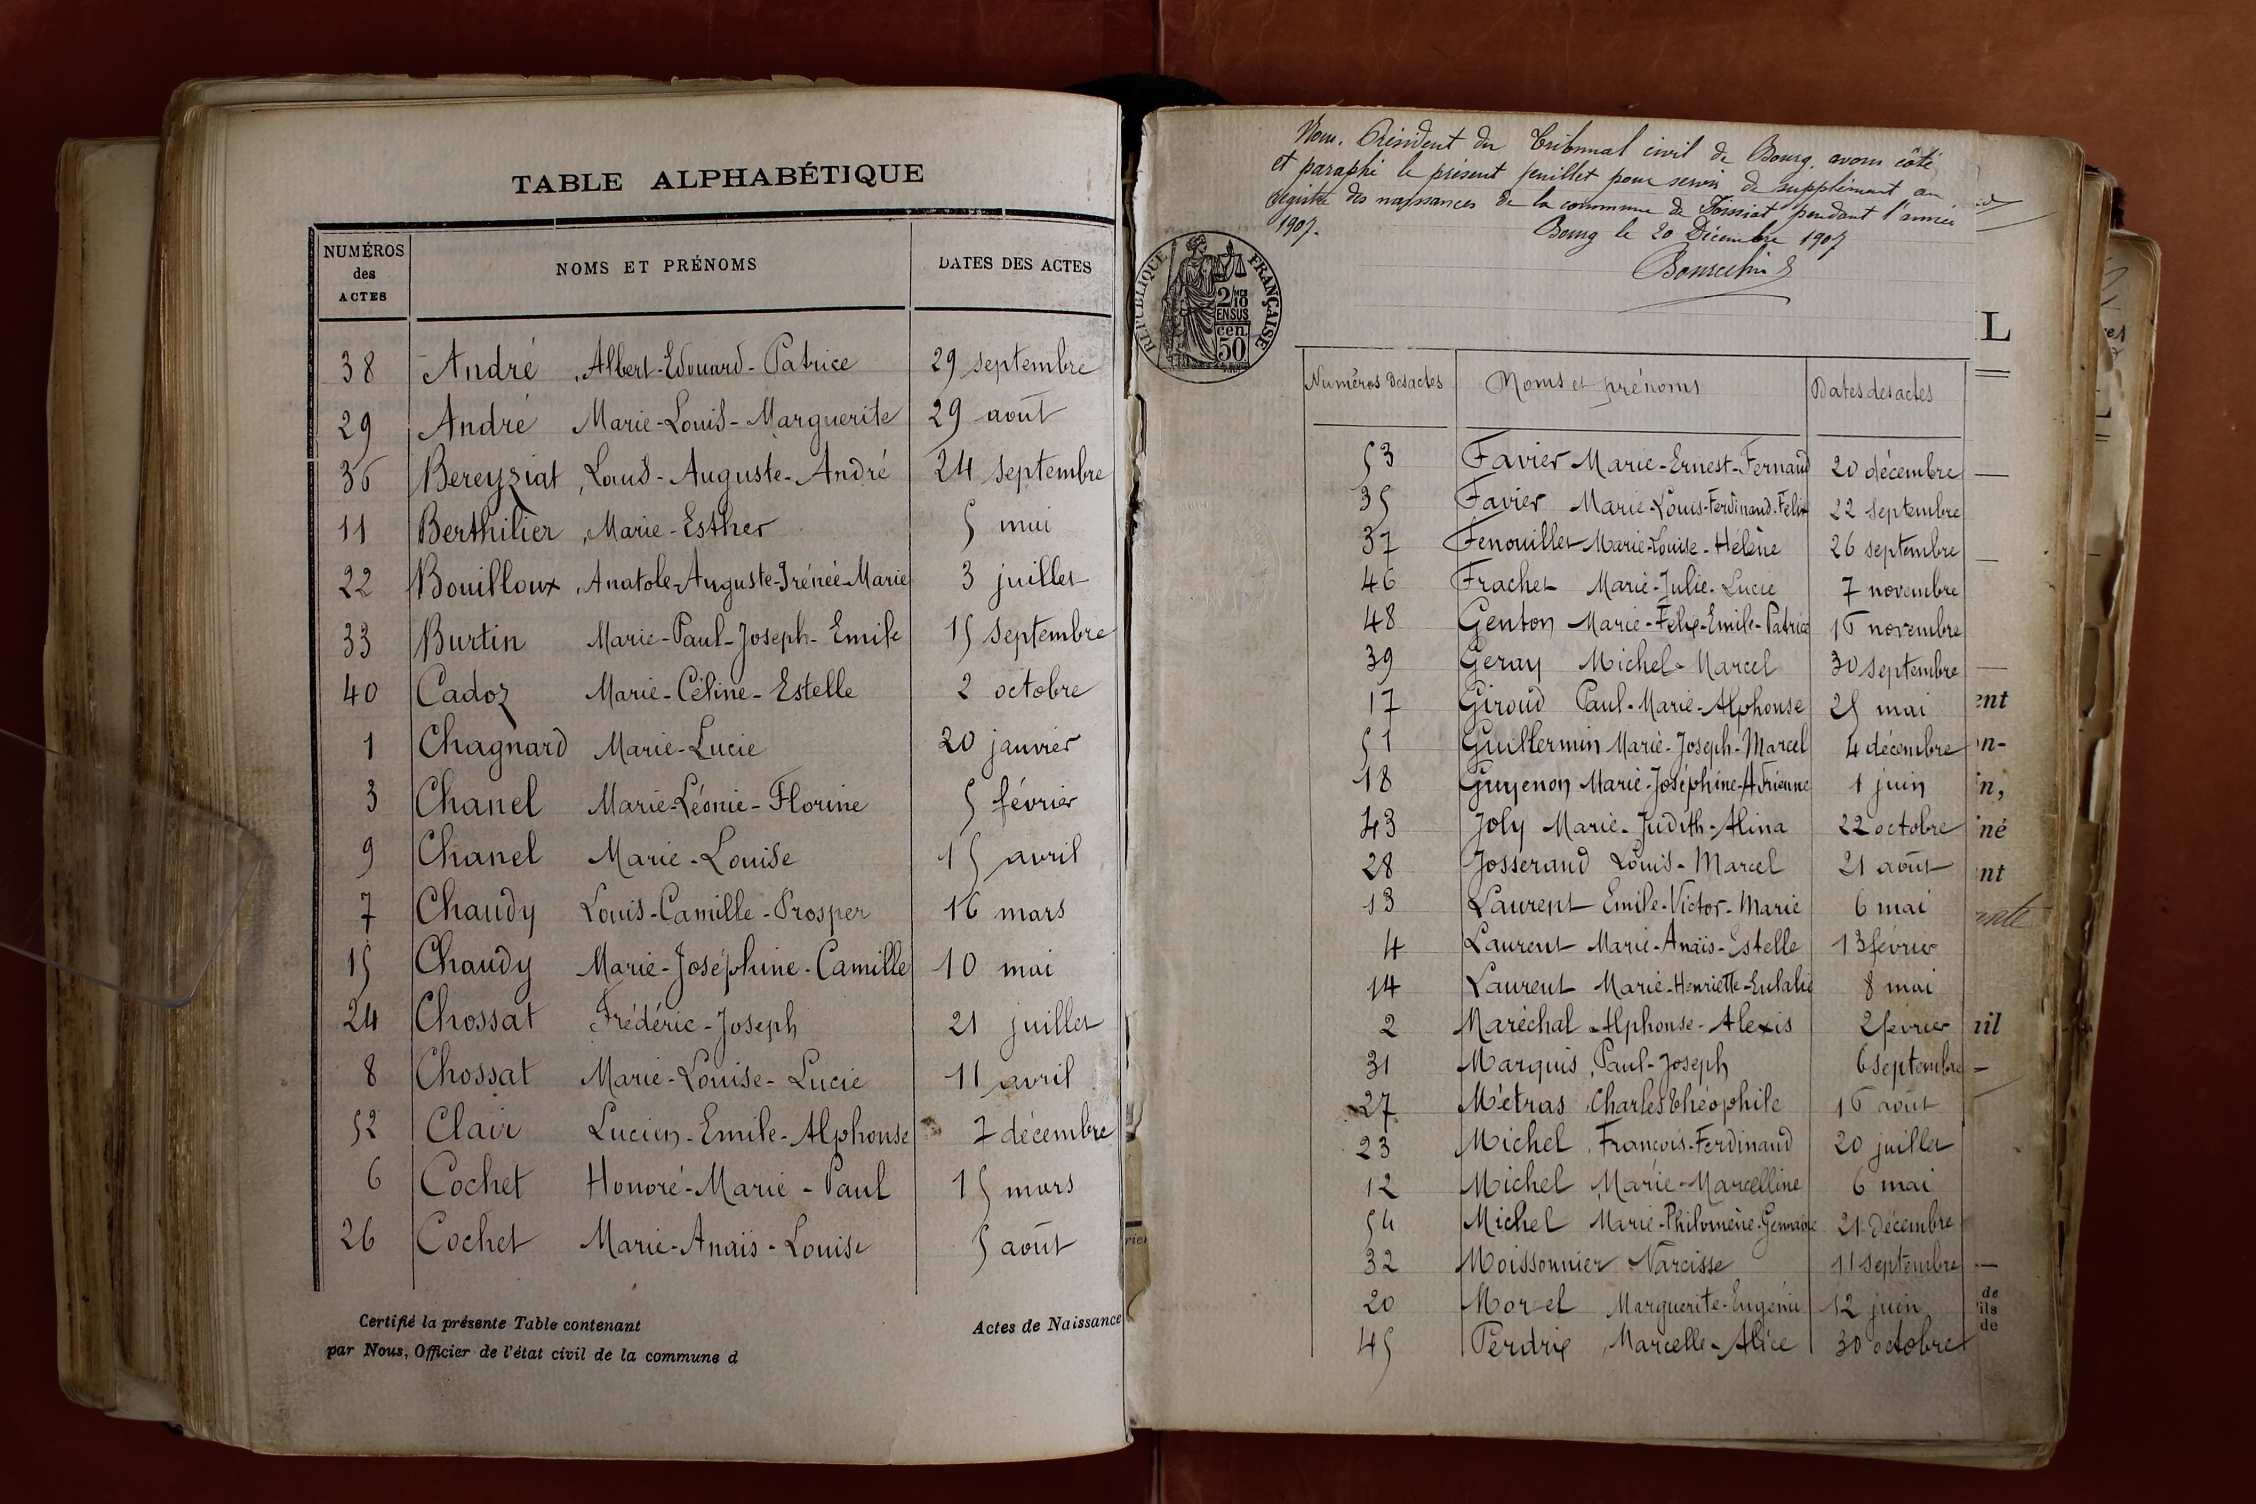 TABLE ALPHABÉTIQUE
NUMÉROS des ACTES NOMS ET PRÉNOMS DATES DES ACTES
38 André Albert-Edouard-Patrice 29 septembre
29 André Marie-Louis-Marguerite 29 août
36 Bereyziat Louis-Auguste-André 24 septembre
11 Berthilier Marie-Esther 5 mai
22 Bouilloux Anatole-Auguste-Irénée-Marie 3 juillet
33 Burtin Marie-Paul-Joseph-Emile 15 septembre
40 Cadoz Marie-Céline-Estelle 2 octobre
1 Chagnard Marie-Lucie 20 janvier
3 Chanel Marie-Léonie-Florine 5 février
9 Chanel Marie-Louise 15 avril
7 Chaudy Louis-Camille-Prosper 16 mars
15 Chaudy Marie-Joséphine-Camille 10 mai
24 Chossat Frédéric-Joseph 21 juillet
8 Chossat Marie-Louise-Lucie 11 avril
52 Clair Lucien-Emile-Alphonse 7 décembre
6 Cochet Honoré-Marie-Paul 15 mars
26 Cochet Marie-Anaïs-Louise 5 août
Certifié la présente Table contenant Actes de Naissance
par Nous, Officier de l'état civil de la commune d
Nous, Président du Tribunal civil de Bourg, avons côté
et paraphé le présent feuillet pour servir de supplément au
registre des naissances de la commune de pendant l'année
1907.
Bourg le 20 Décembre 1907
RÉPUBLIQUE FRANÇAISE
2/10 EN SUS
50 cen
L
Numéros des actes Noms et prénoms Dates des actes
53 Favier Marie-Ernest-Fernand 20 décembre
35 Favier Marie-Louis-Ferdinand-Felix 22 septembre
37 Fenouillet Marie-Louise-Hélène 26 septembre
46 Frachet Marie-Julie-Lucie 7 novembre
48 Genton Marie-Félix-Emile-Patrice 16 novembre
39 Geray Michel-Marcel 30 septembre
17 Giroud Paul-Marie-Alphonse 25 mai
51 Guillermin Marie-Joseph-Marcel 4 décembre
18 Guyenon Marie-Joséphine-Adrienne 1 juin
43 Joly Marie-Judith-Alina 22 octobre
28 Josserand Louis-Marcel 21 août
13 Laurent Emile-Victor-Marie 6 mai
4 Laurent Marie-Anaïs-Estelle 13 février
14 Laurent Marie-Henriette-Eulalie 8 mai
2 Maréchal Alphonse-Alexis 2 février
31 Marquis Paul-Joseph 6 septembre
27 Métras Charles Théophile 16 août
23 Michel François-Ferdinand 20 juillet
12 Michel Marie-Marcelline 6 mai
54 Michel Marie-Philomène-Germaine 21 décembre
32 Moissonnier Narcisse 11 septembre
20 Morel Marguerite-Eugénie 12 juin
45 Perdrix Marcelle-Alice 30 octobre